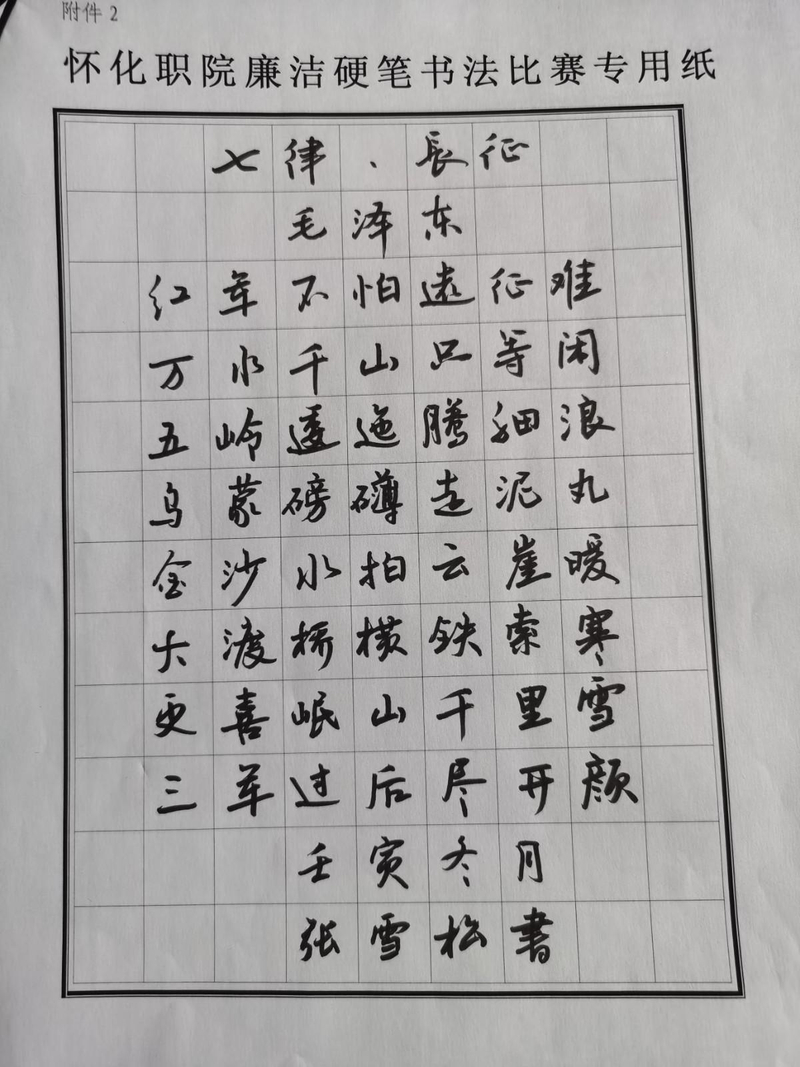 附件 2
怀化职院廉洁硬笔书法比赛专用纸
七律、長征
毛泽东
红军不怕遠征难
万水千山只等闲
五岭逶迤腾细浪
乌蒙磅礴走泥丸
金沙水拍云崖暖
大渡桥横铁索寒
更喜岷山千里雪
三军过后尽开颜
壬寅冬月
张雪松書